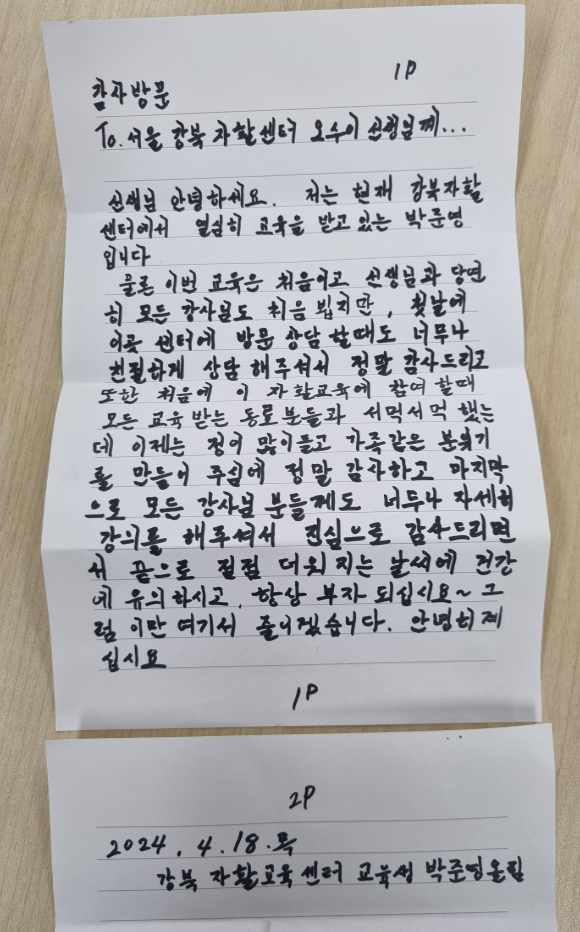 1P
감사방문
To. 서울 강북 자활센터 오수이 선생님께...
선생님 안녕하세요. 저는 현재 강북자활
센터에서 열심히 교육을 받고 있는 박준영
입니다
물론 이번 교육은 처음이고 선생님과 당연
히 모든 강사님도 처음 뵙지만, 첫날에
이곳 센터에 방문 상담 할때도 너무나
친절하게 상담 해주셔서 정말 감사드리고
또한 처음에 이 자활교육에 참여 할때
모든 교육 받는 동료분들과 서먹서먹 했는
데 이제는 정이 많이들고 가족같은 분윚기
를 만들어 주심에 정말 감사하고 마지막
으로 모든 강사님 분들께도 너무나 자세히
강의를 해주셔서 진심으로 감사드리면
서 끝으로 점점 더워지는 날씨에 건강
에 유의하시고, 항상 부자 되십시요~ 그
럼 이만 여기서 줄이겠습니다. 안녕히 계
십시요
1P
2P
2024. 4. 18. 목
강북 자활교육센터 교육생 박준영올림